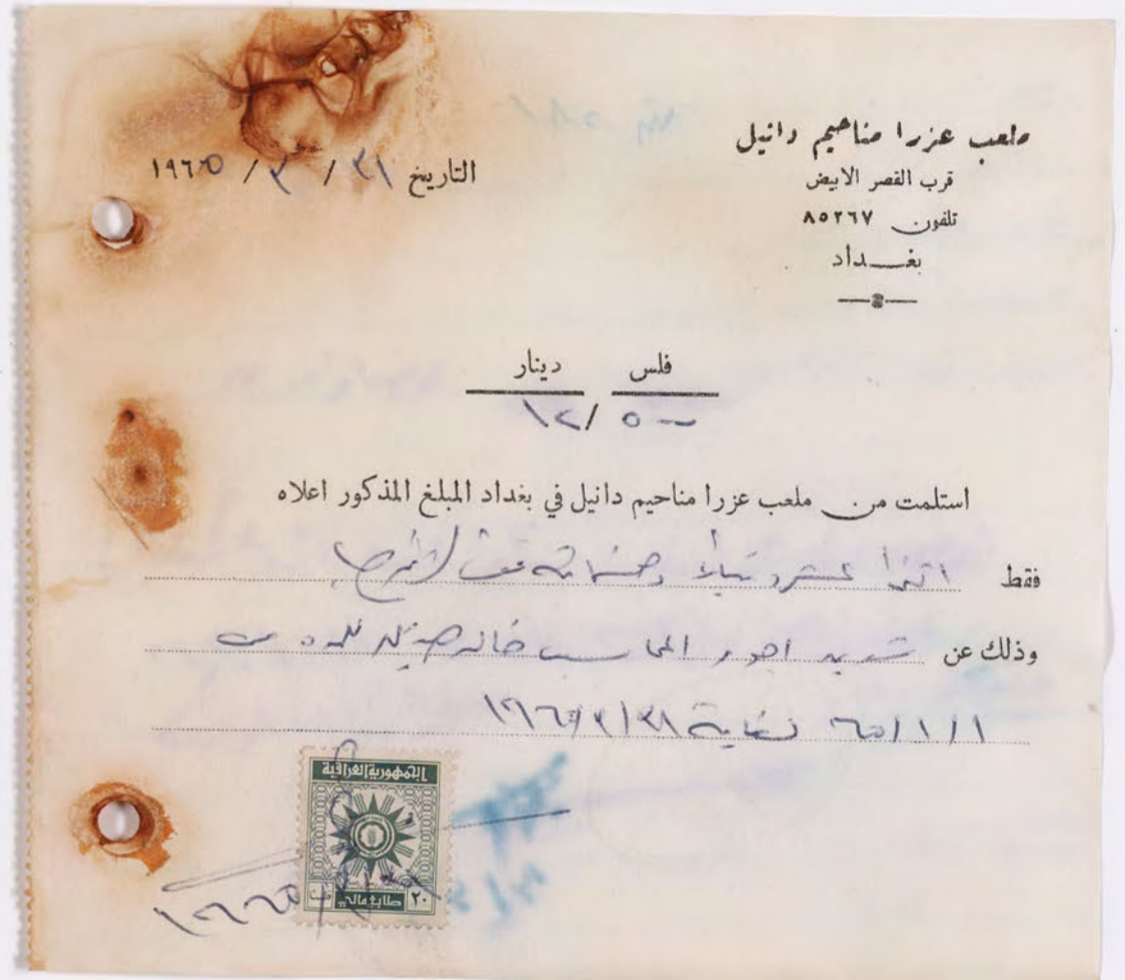 ملعب عزرا مناحيم دانيل
قرب القصر الابيض
تلفون ٨٥٢٦٧
بغداد
التاريخ ٣١ / ٣ / ١٩٦٥
فلس دينار
٥٠٠ / ١٢
استلمت من ملعب عزرا مناحيم دانيل في بغداد المبلغ المذكور اعلاه
فقط اثنا عشر ديناراً وخمسمائة فلس
وذلك عن تسديد اجور المحاسب
١/١/٦٥ لغاية ٣١/٣/١٩٦٥
الجمهورية العراقية
٢٠ طابع مالي فلساً